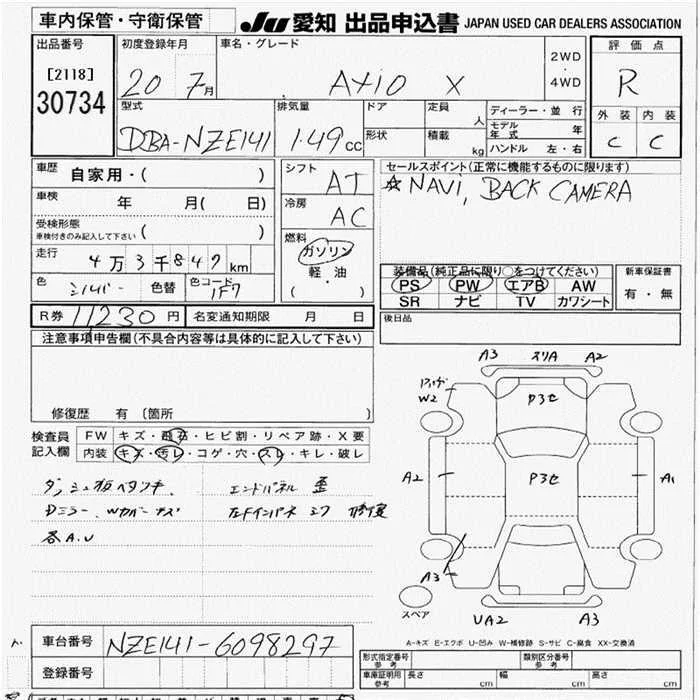 車内保管・守衛保管
JU 愛知 出品申込書 JAPAN USED CAR DEALERS ASSOCIATION
出品番号
[2118]
30734
初度登録年月
20 7月
車名・グレード
AXIO X
2WD
・
4WD
評価点
R
外装 内装
C C
型式
DBA-NZE141
排気量
1.49 cc
ドア
形状
定員
人
積載
kg
ディーラー・並行
モデル年式 年
ハンドル 左・右
車歴
自家用・( )
車検
年 月( 日)
受検形態
車検付きのみ記入して下さい ( )
走行
4万3千847km
色 シルバー 色替 色コード 1F7
シフト
AT
冷房
AC
燃料
ガソリン
軽・油
( )
セールスポイント(正常に機能するものに限ります)
☆NAVI, BACK CAMERA
装備品(純正品に限り○をつけてください)
PS PW エアB AW
SR ナビ TV カワシート
新車保証書
有・無
R券 11,230円 名変通知期限 月 日
後日品
注意事項申告欄(不具合内容等は具体的に記入して下さい)
修復歴 有〔箇所 〕
検査員
記入欄
FW キズ・飛石・ヒビ割・リペア跡・X要
内装 キズ・汚レ・コゲ・穴・スレ・キレ・破レ
ダッシュ板ベタツキ エンドパネル 歪
Dミラー、Wカバーキズ
修復
各A.U
A3 スリA A2
W2
P3セ
A2
P3セ
A1
A3
スペア
UA2 A3
A-キズ E-エクボ U-凹み W-補修跡 S-サビ C-腐食 XX-交換済
車台番号 NZE141-6098297
登録番号
型式指定番号
参考
類別区分番号
参考
車庫証明用
参考
長さ cm 幅 cm 高さ cm